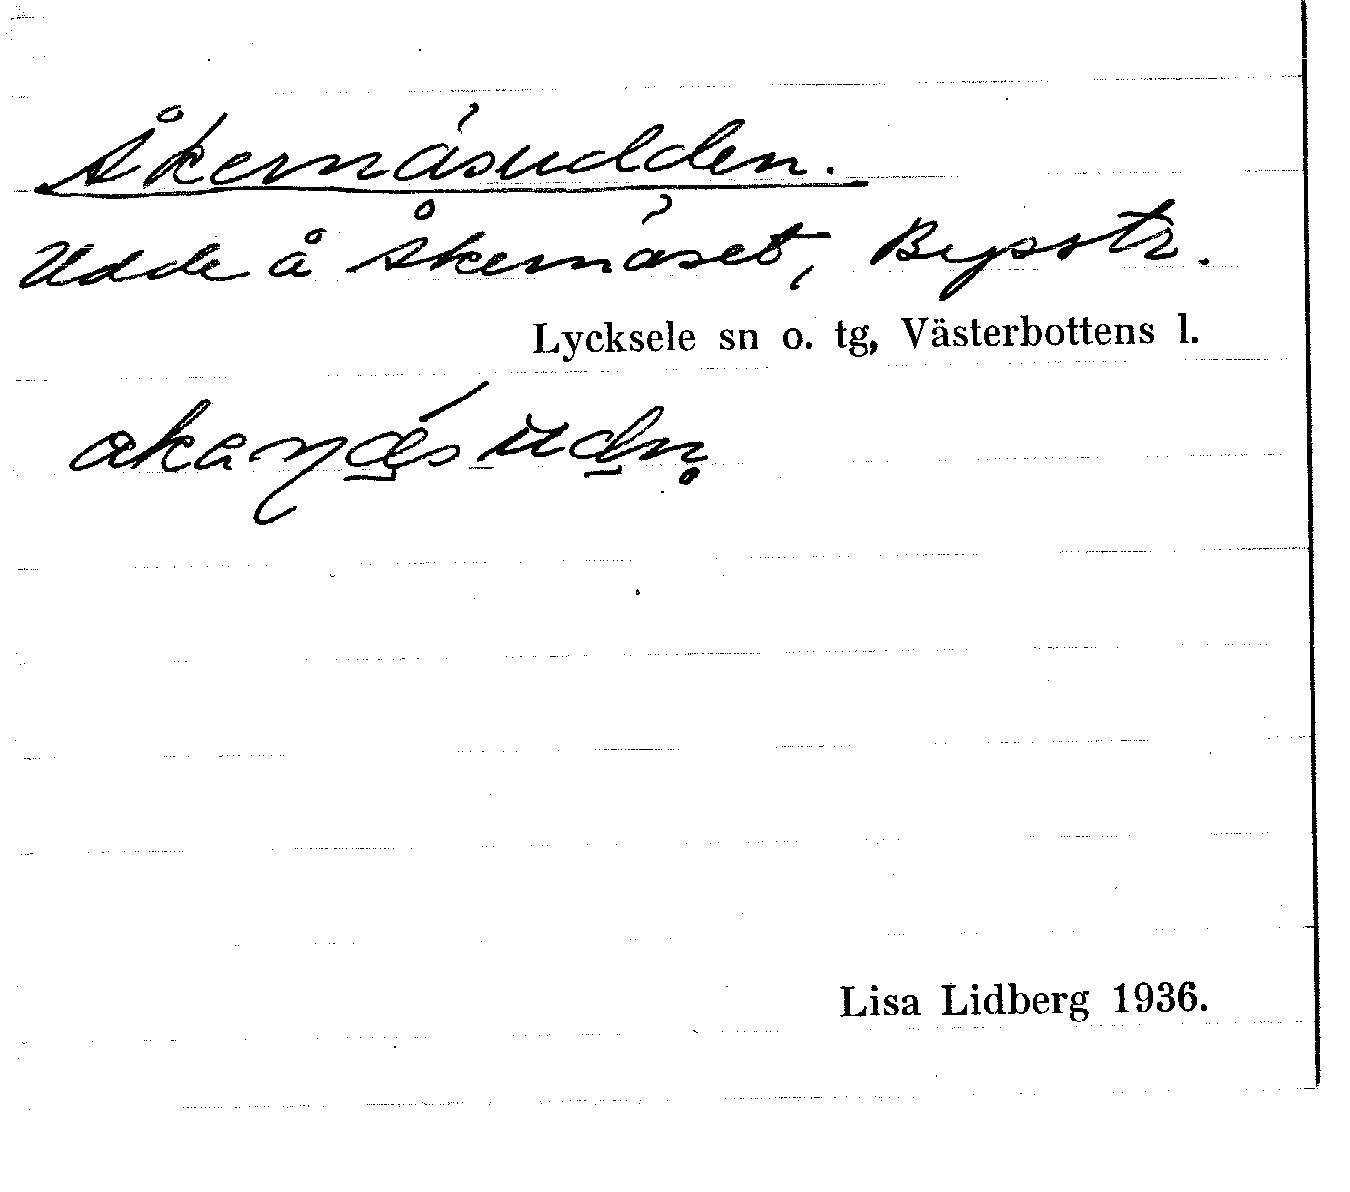 Åkernäsudden.
Udde å Åkernäset, Bysstr.
Lycksele sn o. tg, Västerbottens l.
Lisa Lidberg 1936.